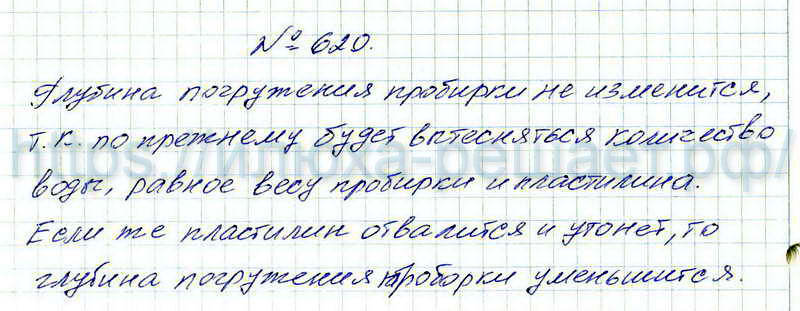 № 620.
Глубина погружения пробирки не изменится,
т.к. по прежнему будет вытесняться количество
воды, равное весу пробирки и пластилина.
Если же пластилин отвалится и утонет, то
глубина погружения проборки уменьшится.
https://илюха-решает.рф/